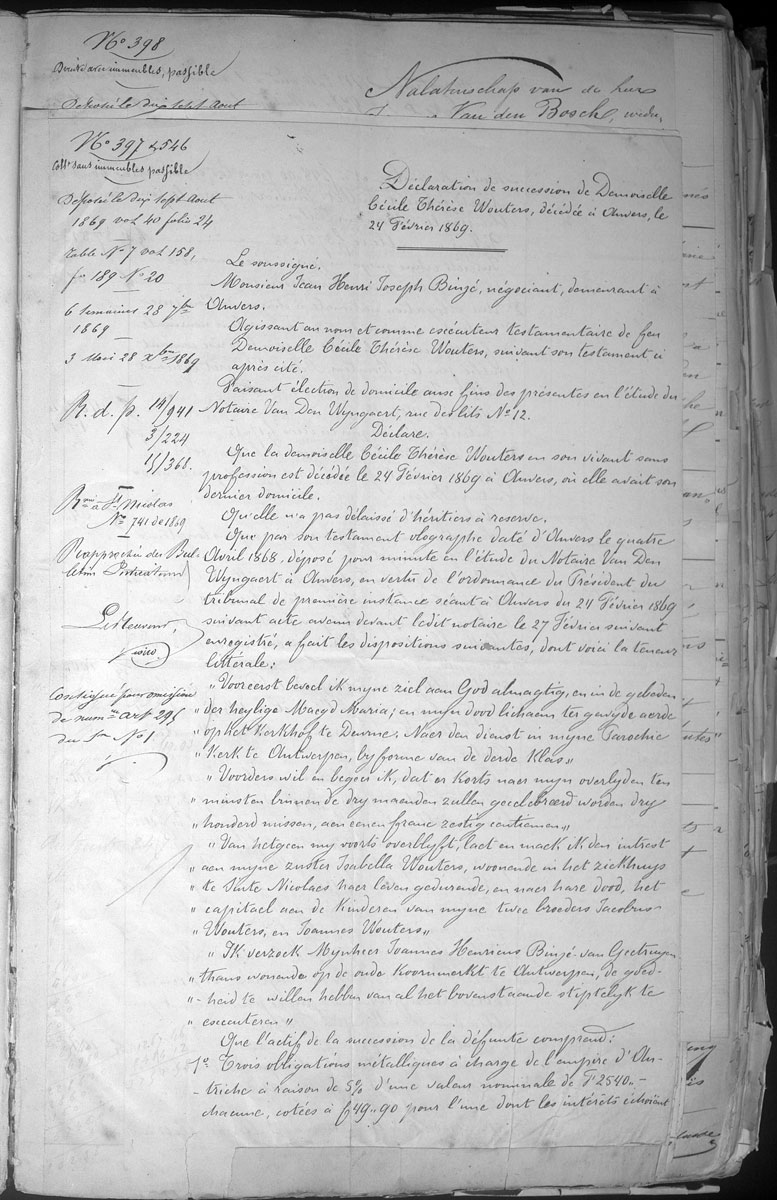 No 398
immeubles, passible
Déposé le dix sept Aout
Nalatenschap van de heer
Van den Bosch, wedu.
No 397 & 546
sans immeubles passible
Déposé le dix sept Aout
1869 vol 40 folio 24
table No 7 vol 158,
fo 189 No 20
6 semaines 28 7bre
1869
3 Mois 28 Xbre 1869
R. d. p. 14/941
3/224
15/366.
à St Nicolas
No 741 de 1869
Rapproché des Bul-
letins
Consigné pour omission
de art 295
du No 1
Déclaration de succession de Demoiselle
Cécile Thérèse Wouters, décédée à Anvers, le
24 Février 1869.
Le soussigné.
Monsieur Jean Henri Joseph Binjé, négociant, demeurant à
Anvers.
Agissant au nom et comme exécuteur testamentaire de feu
Demoiselle Cécile Thérèse Wouters, suivant son testament ci
après cité.
Faisant élection de domicile aux fins des présentes en l'étude du
Notaire Van Den Wyngaert, rue des lits No 12.
Déclare.
Que la demoiselle Cécile Thérèse Wouters en son vivant sans
profession est décédée le 24 Février 1869 à Anvers, où elle avait son
dernier domicile.
Qu'elle n'a pas délaissé d'héritiers à reserve.
Que par son testament olographe daté d'Anvers le quatre
Avril 1868, déposé pour minute en l'étude du Notaire Van Den
Wyngaert à Anvers, en vertu de l'ordonnance du Président du
tribunal de première instance séant à Anvers du 24 Février 1869
suivant acte avenu devant ledit notaire le 27 Février suivant
enregistré, a fait les dispositions suivantes, dont voici la teneur
littérale:
„ Vooreerst beveel ik myne ziel aan God almagtig, en in de gebeden
„ der heylige Maegd Maria; en myn dood lichaem ter gewyde aerde
„ op het Kerkhof te Deurne. Naer den dienst in myne Parochie
„ Kerk te Antwerpen, by forme van de derde Klas„
„ Voorders wil en begeer ik, dat er korts naer myn overlyden ten
„ minsten binnen de dry maenden zullen gecelebreerd worden dry
„ honderd missen, aen eenen franc zestig centiemen„
„ Van hetgeen my voorts overblyft, laet en maek ik den intrest
„ aen myne zuster Isabella Wouters, woonende in het ziekhuys
„ te Sinte Nicolaes haer leven gedurende, en naer hare dood, het
„ capitael aen de Kinderen van myne twee broeders Jacobus
„ Wouters, en Joannes Wouters„
„ Ik verzoek Mynheer Joannes Henricus Binjé van Geetruyen
„ thans wonende op de oude Koornmerkt te Antwerpen, de goed-
„ -heid te willen hebben van al het bovenstaande stiptelyk te
„ executeren„
Que l'actif de la succession de la défunte comprend:
1o Trois obligations métalliques à charge de l'empire d'Au-
-triche à raison de 5% d'une valeur nominale de F 2540.-
chacune, cotées à f 49„90 pour l'une dont les intérêts échoient